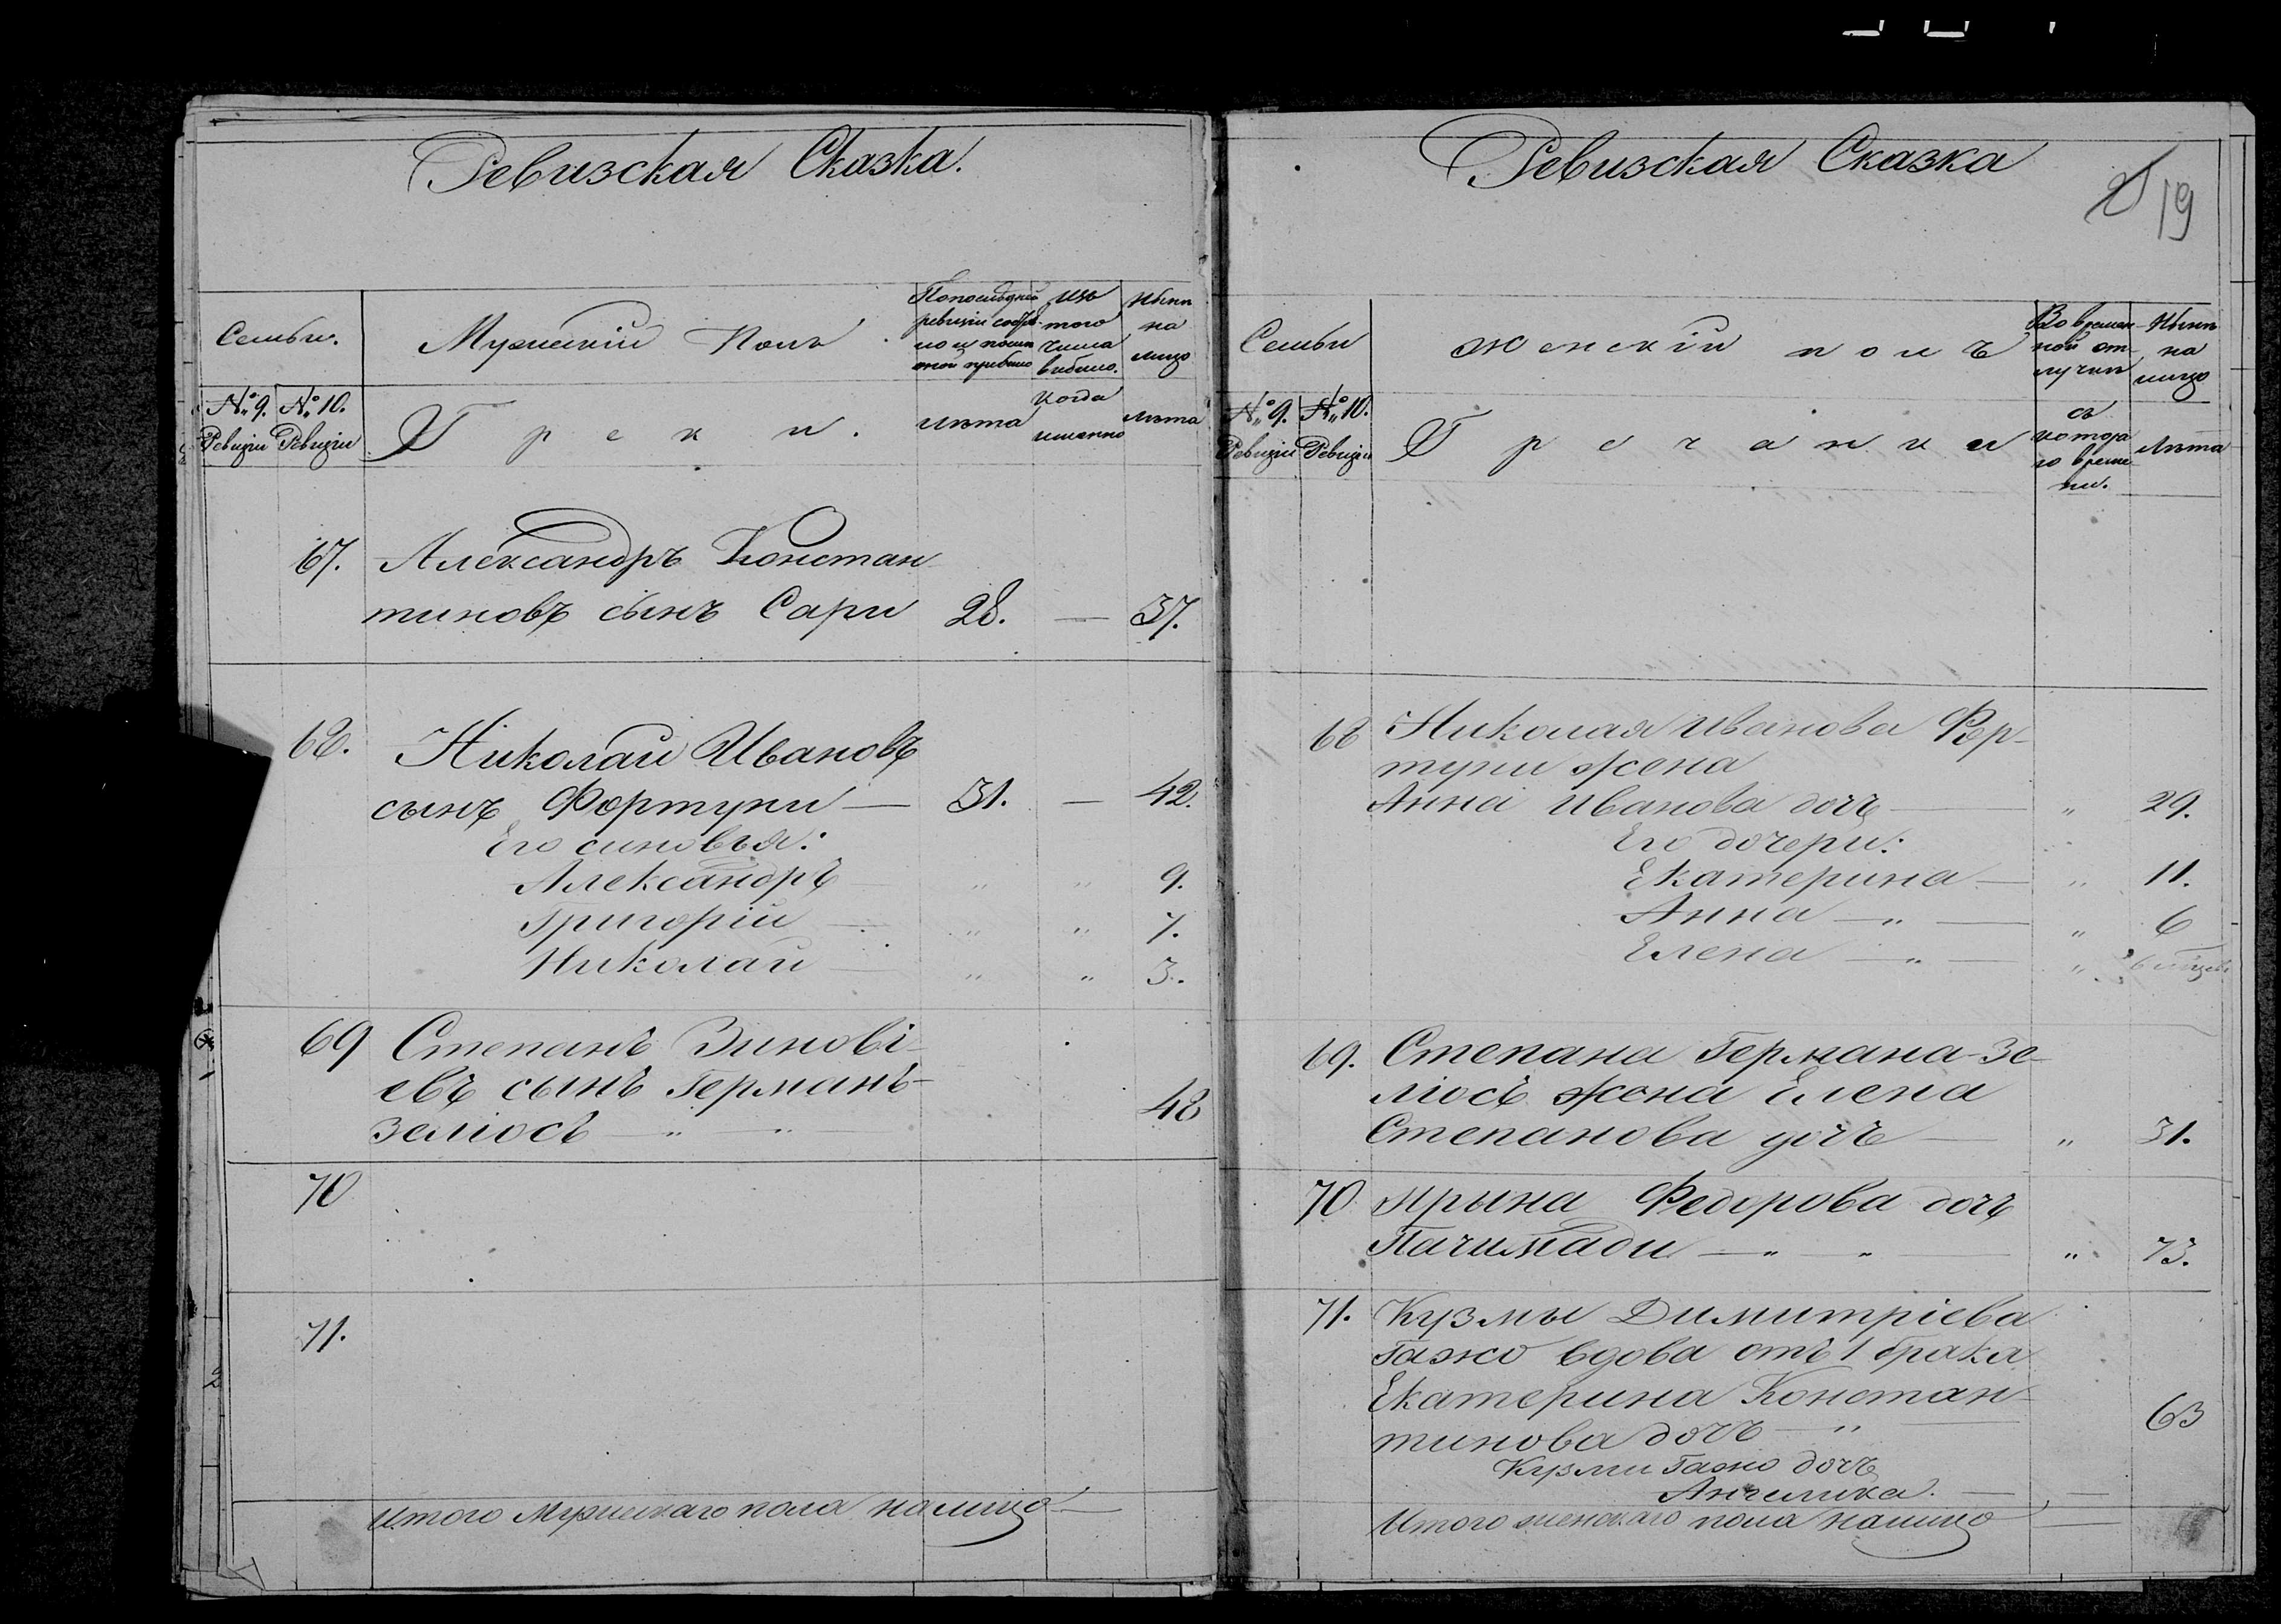 Ревизская Сказка.
Семьи.
Мужескій Полъ
По последней
ревизіи состо-
яло и после
оной прибыло
изъ
того
числа
выбыло.
Ныне
на
лицо
№ 9.
Ревизіи
№ 10.
Ревизіи
Греки.
лета
когда
именно
лета
67. Александръ Констан
тиновъ сынъ Сари 28. — 37.
68. Николай Ивановъ
сынъ Фортуни — 31. — 42.
Его синовья:
Александръ — " " 9.
Григорій — " " 7.
Николай — " " 3.
69 Степанъ Зинові-
евъ сынъ Германъ-
Зеліосъ — " — " 48
70
71.
Итого Мужескаго пола налицо —
Ревизская Сказка
19
Семьи
женскій полъ
Во времен-
ной от-
лучки
Ныне
на
лицо
№ 9.
Ревизіи
№ 10.
Ревизіи
Гречанки
съ
котора
го време-
ни.
Лета
68 Николая Иванова Фор-
туни жена
Анна Иванова дочъ — " 29.
Его дочери:
Екатерина — " 11.
Анна — " — " 6
Елена — " — "
69. Степана Германа-Зе-
ліосъ жена Елена
Степанова дочъ — " 31.
70 Ирына Федорова дочъ
Пачимади — " " — " 73.
71. Кузмы Димитріева
Гажо вдова отъ 1 брака
Екатерина Констан-
тинова дочъ — " — 63
Кузми Гажо дочъ
Ангелика. — —
Итого женскаго пола налицо —